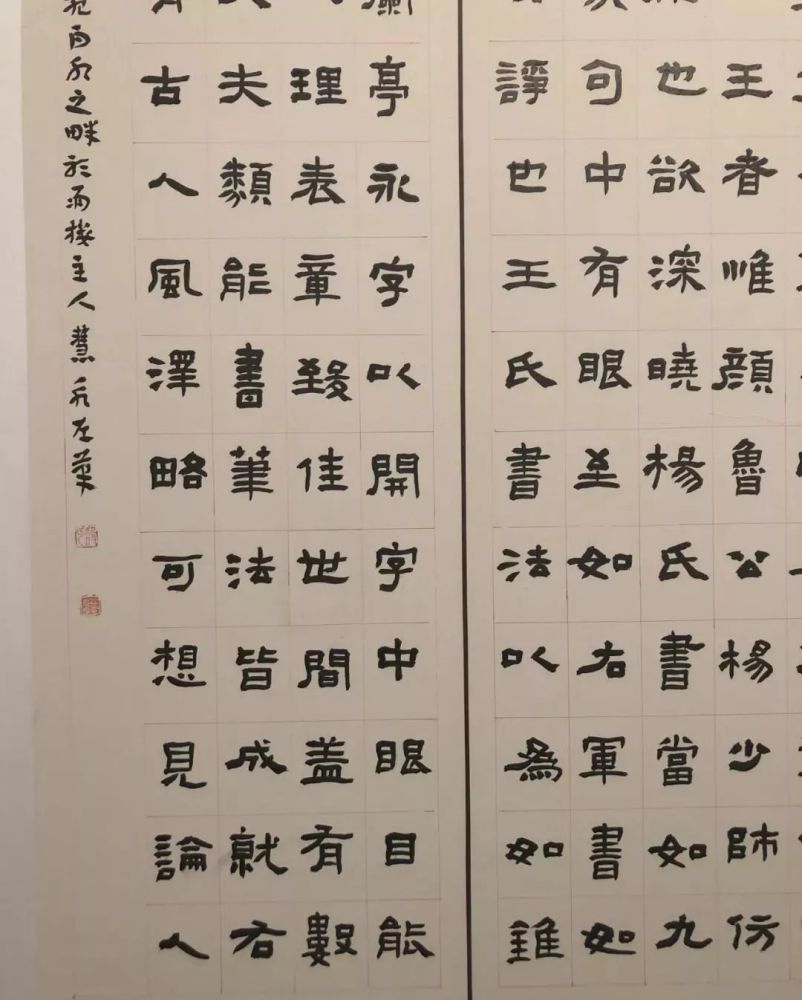 王者惟顏魯公楊少師仿
也欲深曉楊氏書當如九
句中有眼至如右軍書如
諍也王氏書法以為如錐
蘭亭永字以開字中眼目能
理表章致佳世間盖有數
夫類能書筆法皆成就右
古人風澤略可想見論人
之畔於雨樓主人慧左筆